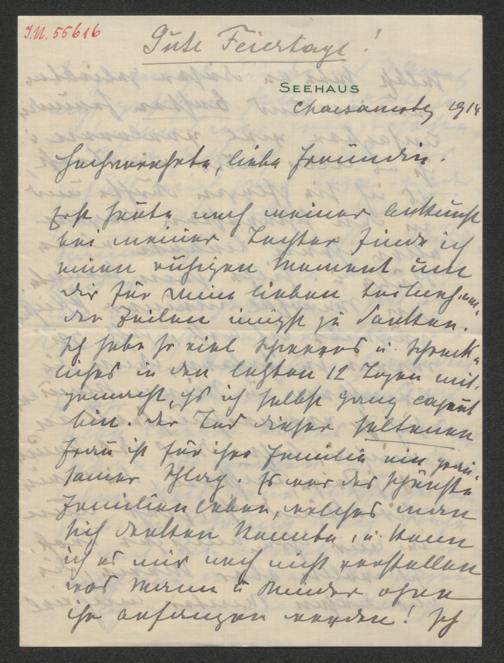 J.N. 55616
Gute Feiertage!
SEEHAUS
Charsamstag 1914
Hochverehrte, liebe Freundin.
Erst heute nach meiner Ankunft
bei meiner Tochter finde ich
einen ruhigen Moment um
dir für deine lieben teilnehmen-
den Zeilen innigst zu danken.
Ich habe so viel Schweres u. Schreck-
liches in den letzten 12 Tagen mit-
gemacht, daß ich selbst ganz caput
bin. Der Tod dieser seltenen
Frau ist für ihre Familie ein grau-
samer Schlag. Es war das schönste
Familienleben, welches man
sich denken konnte, u. kann
ich es mir noch nicht vorstellen
was Mann u. Kinder ohne
ihr anfangen werden! Ich